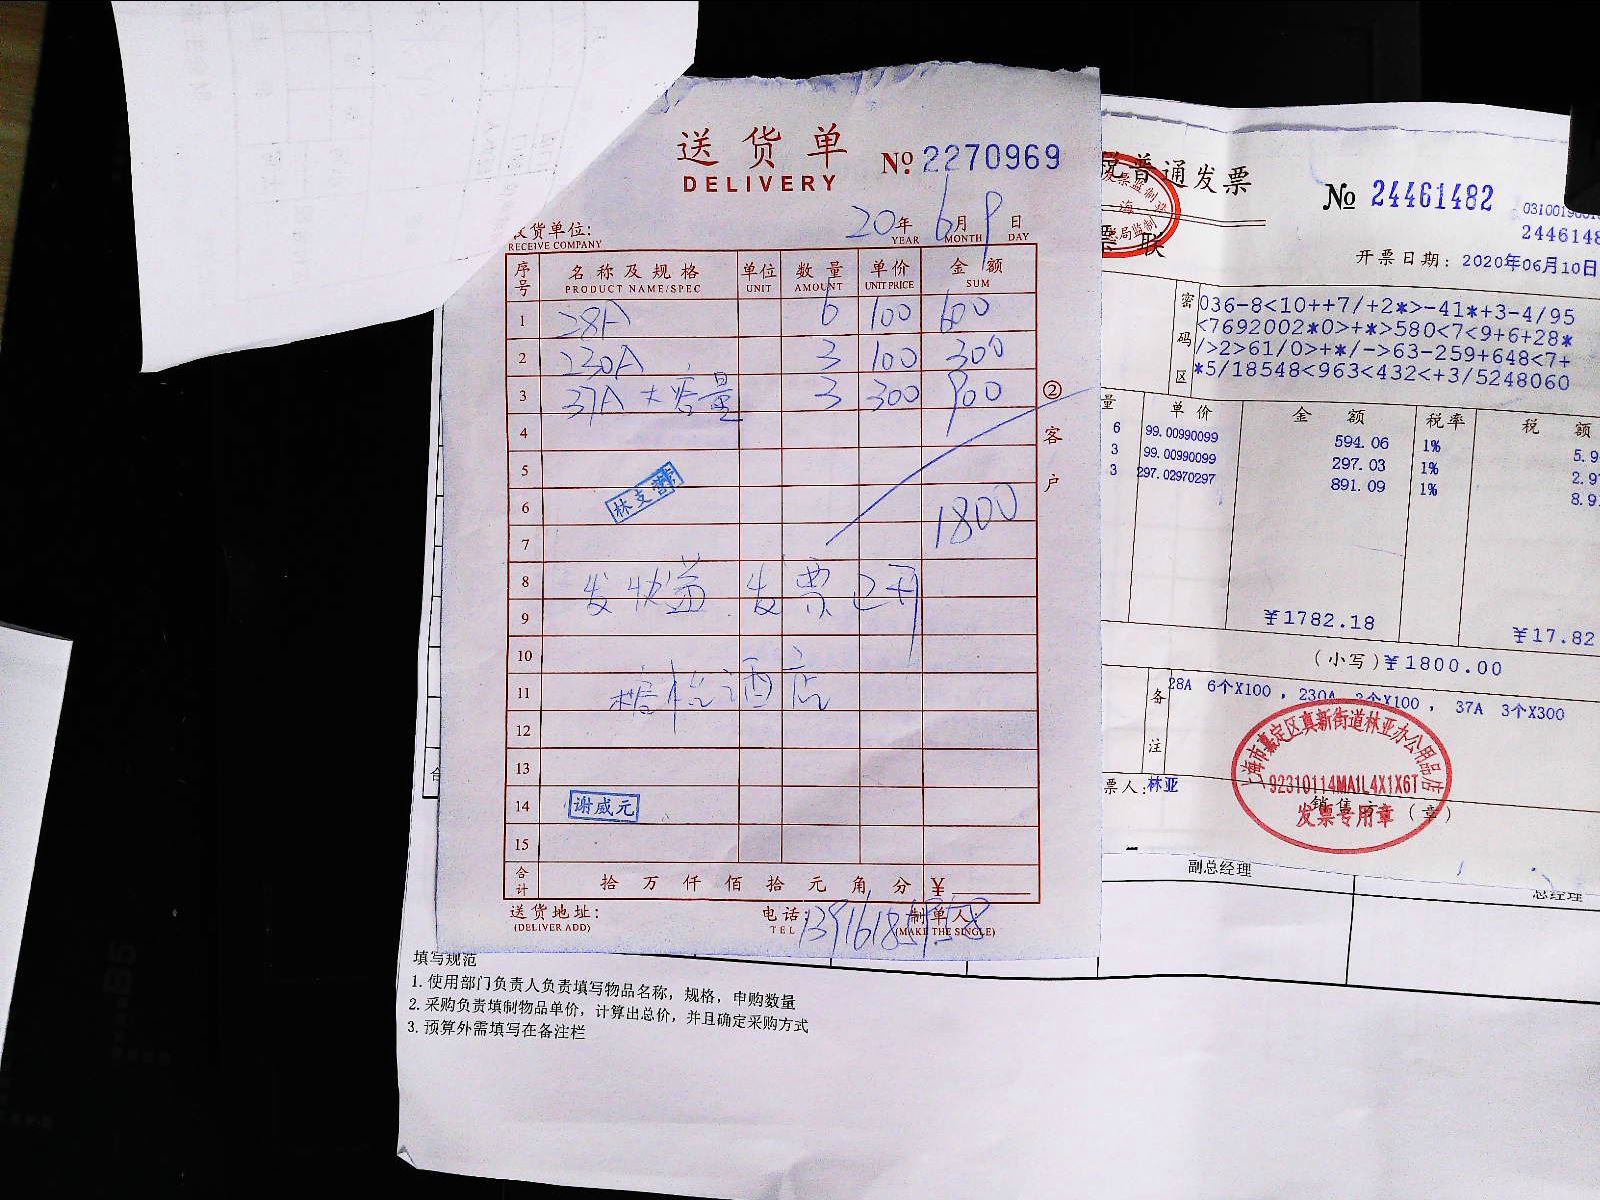 送货单
DELIVERY
No. 2270969
货单位:
RECEIVE COMPANY
20年 6月 9日
YEAR MONTH DAY
序号 名称及规格 单位 数量 单价 金额
PRODUCT NAME/SPEC UNIT AMOUNT UNIT PRICE SUM
1 28A 6 100 600
2 230A 3 100 300
3 37A 大容量 3 300 900
4
5
林支营
6 1800
7
8 发快递 发票已开
9
10
11 酒店
12
13
14 谢威元
15
合计 拾 万 仟 佰 拾 元 角 分 ¥
送货地址: 电话: 制单人:
(DELIVER ADD) TEL (MAKE THE SINGLE)
②客户
税普通发票
票联
No 24461482
2446148
开票日期: 2020年06月10日
密码区
036-8<10++7/+2*>-41*+3-4/95
<7692002*0>+*>580<7<9+6+28*
/>2>61/0>+*/->63-259+648<7+
*5/18548<963<432<+3/5248060
量 单价 金额 税率 税额
6 99.00990099 594.06 1% 5.9
3 99.00990099 297.03 1% 2.9
3 297.02970297 891.09 1% 8.9
¥1782.18 ¥17.82
(小写)¥1800.00
备注
28A 6个X100 , 230A 3个X100 , 37A 3个X300
上海市嘉定区真新街道林亚办公用品店
92310114MA1L4X1X6T
发票专用章
票人: 林亚
销售方 (章)
副总经理
总经理
填写规范
1. 使用部门负责人负责填写物品名称，规格，申购数量
2. 采购负责填制物品单价，计算出总价，并且确定采购方式
3. 预算外需填写在备注栏